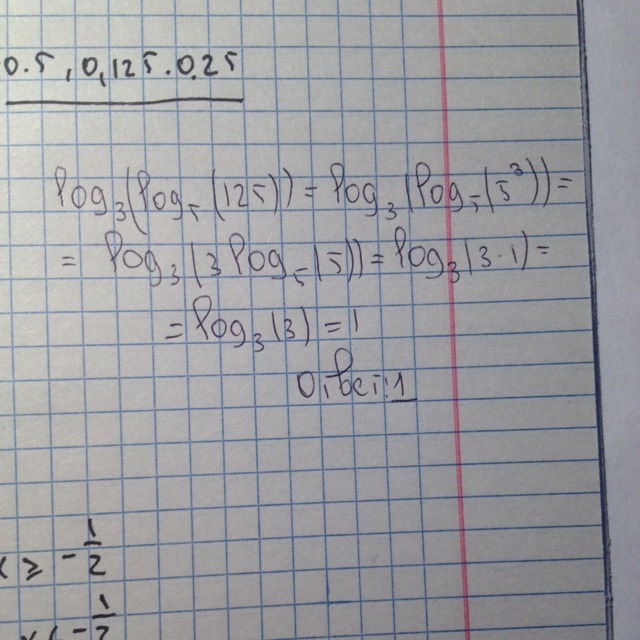 0.5, 0,125. 0.25
log₃(log₅(125)) = log₃(log₅(5³)) =
= log₃(3log₅(5)) = log₃(3·1) =
= log₃(3) = 1
Ответ: 1
x ≥ -1/2
x < -1/2